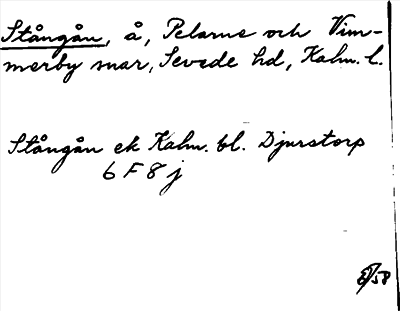 Stångån, å, Pelarne och Vim-
merby snar, Sevede hd, Kalm. l.
Stångån ek Kalm. bl. Djurstorp
6 F 8 j
/58